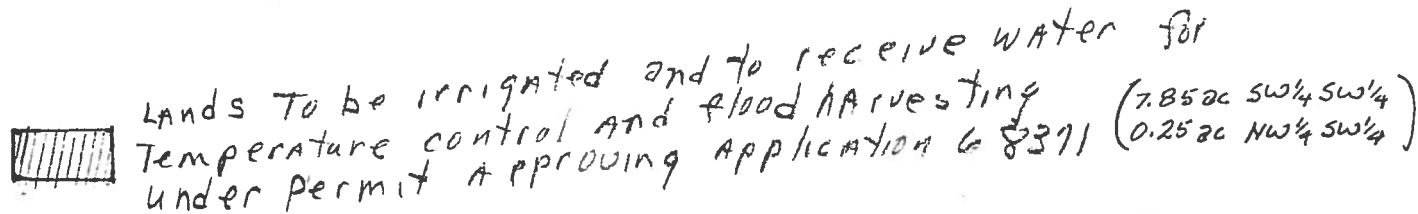 LANDS To be irrigated and to receive WATER for
Temperature control and flood hArvesting (7.85ac SW¼SW¼
under permit Approving Application 68371 0.25ac NW¼SW¼)